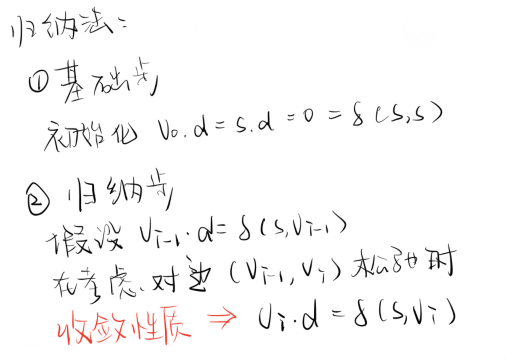 归纳法：
① 基础步
初始化 v₀.d = s.d = 0 = δ(s,s)
② 归纳步
假设 vᵢ₋₁.d = δ(s,vᵢ₋₁)
在考虑对边 (vᵢ₋₁, vᵢ) 松弛时
收敛性质 ⇒ vᵢ.d = δ(s,vᵢ)